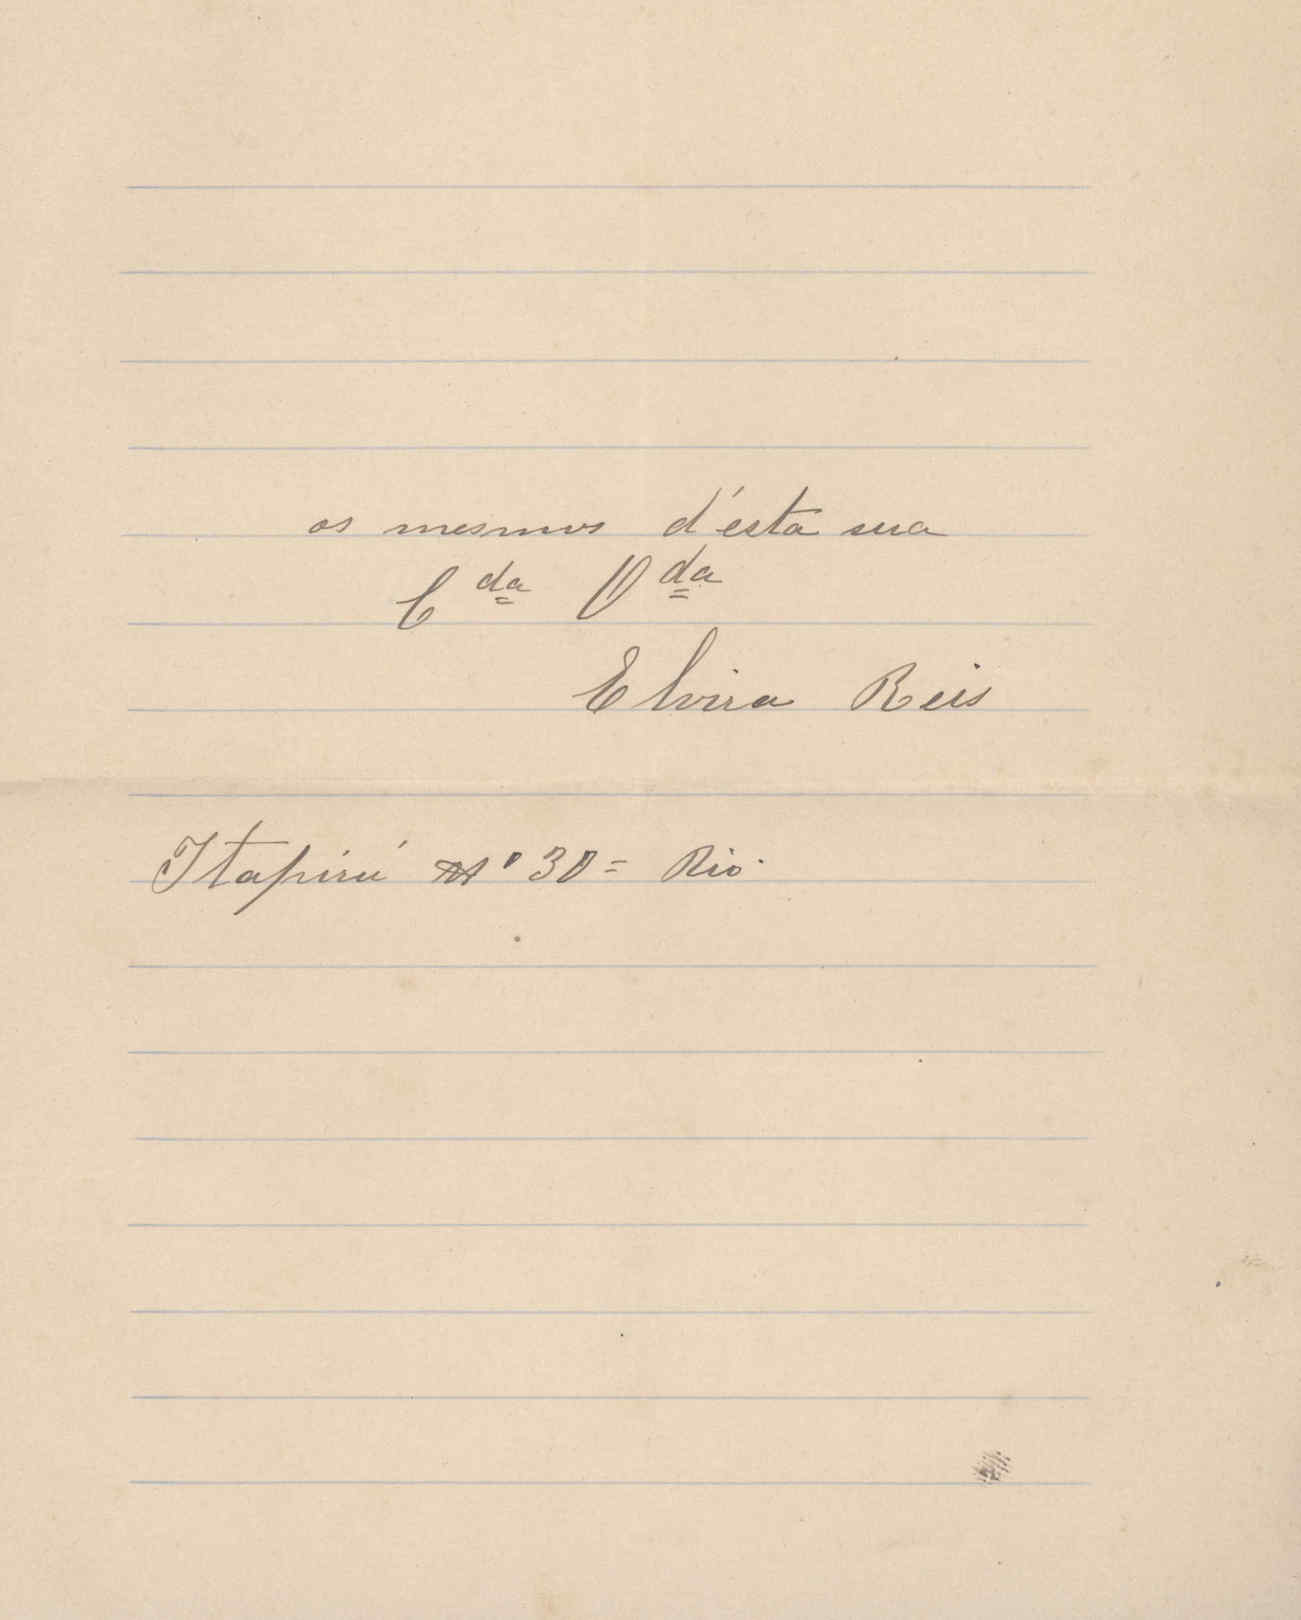 os mesmos d'ésta sua
Cda Oda
Elvira Reis
Itapirú Nº 30 = Rio.